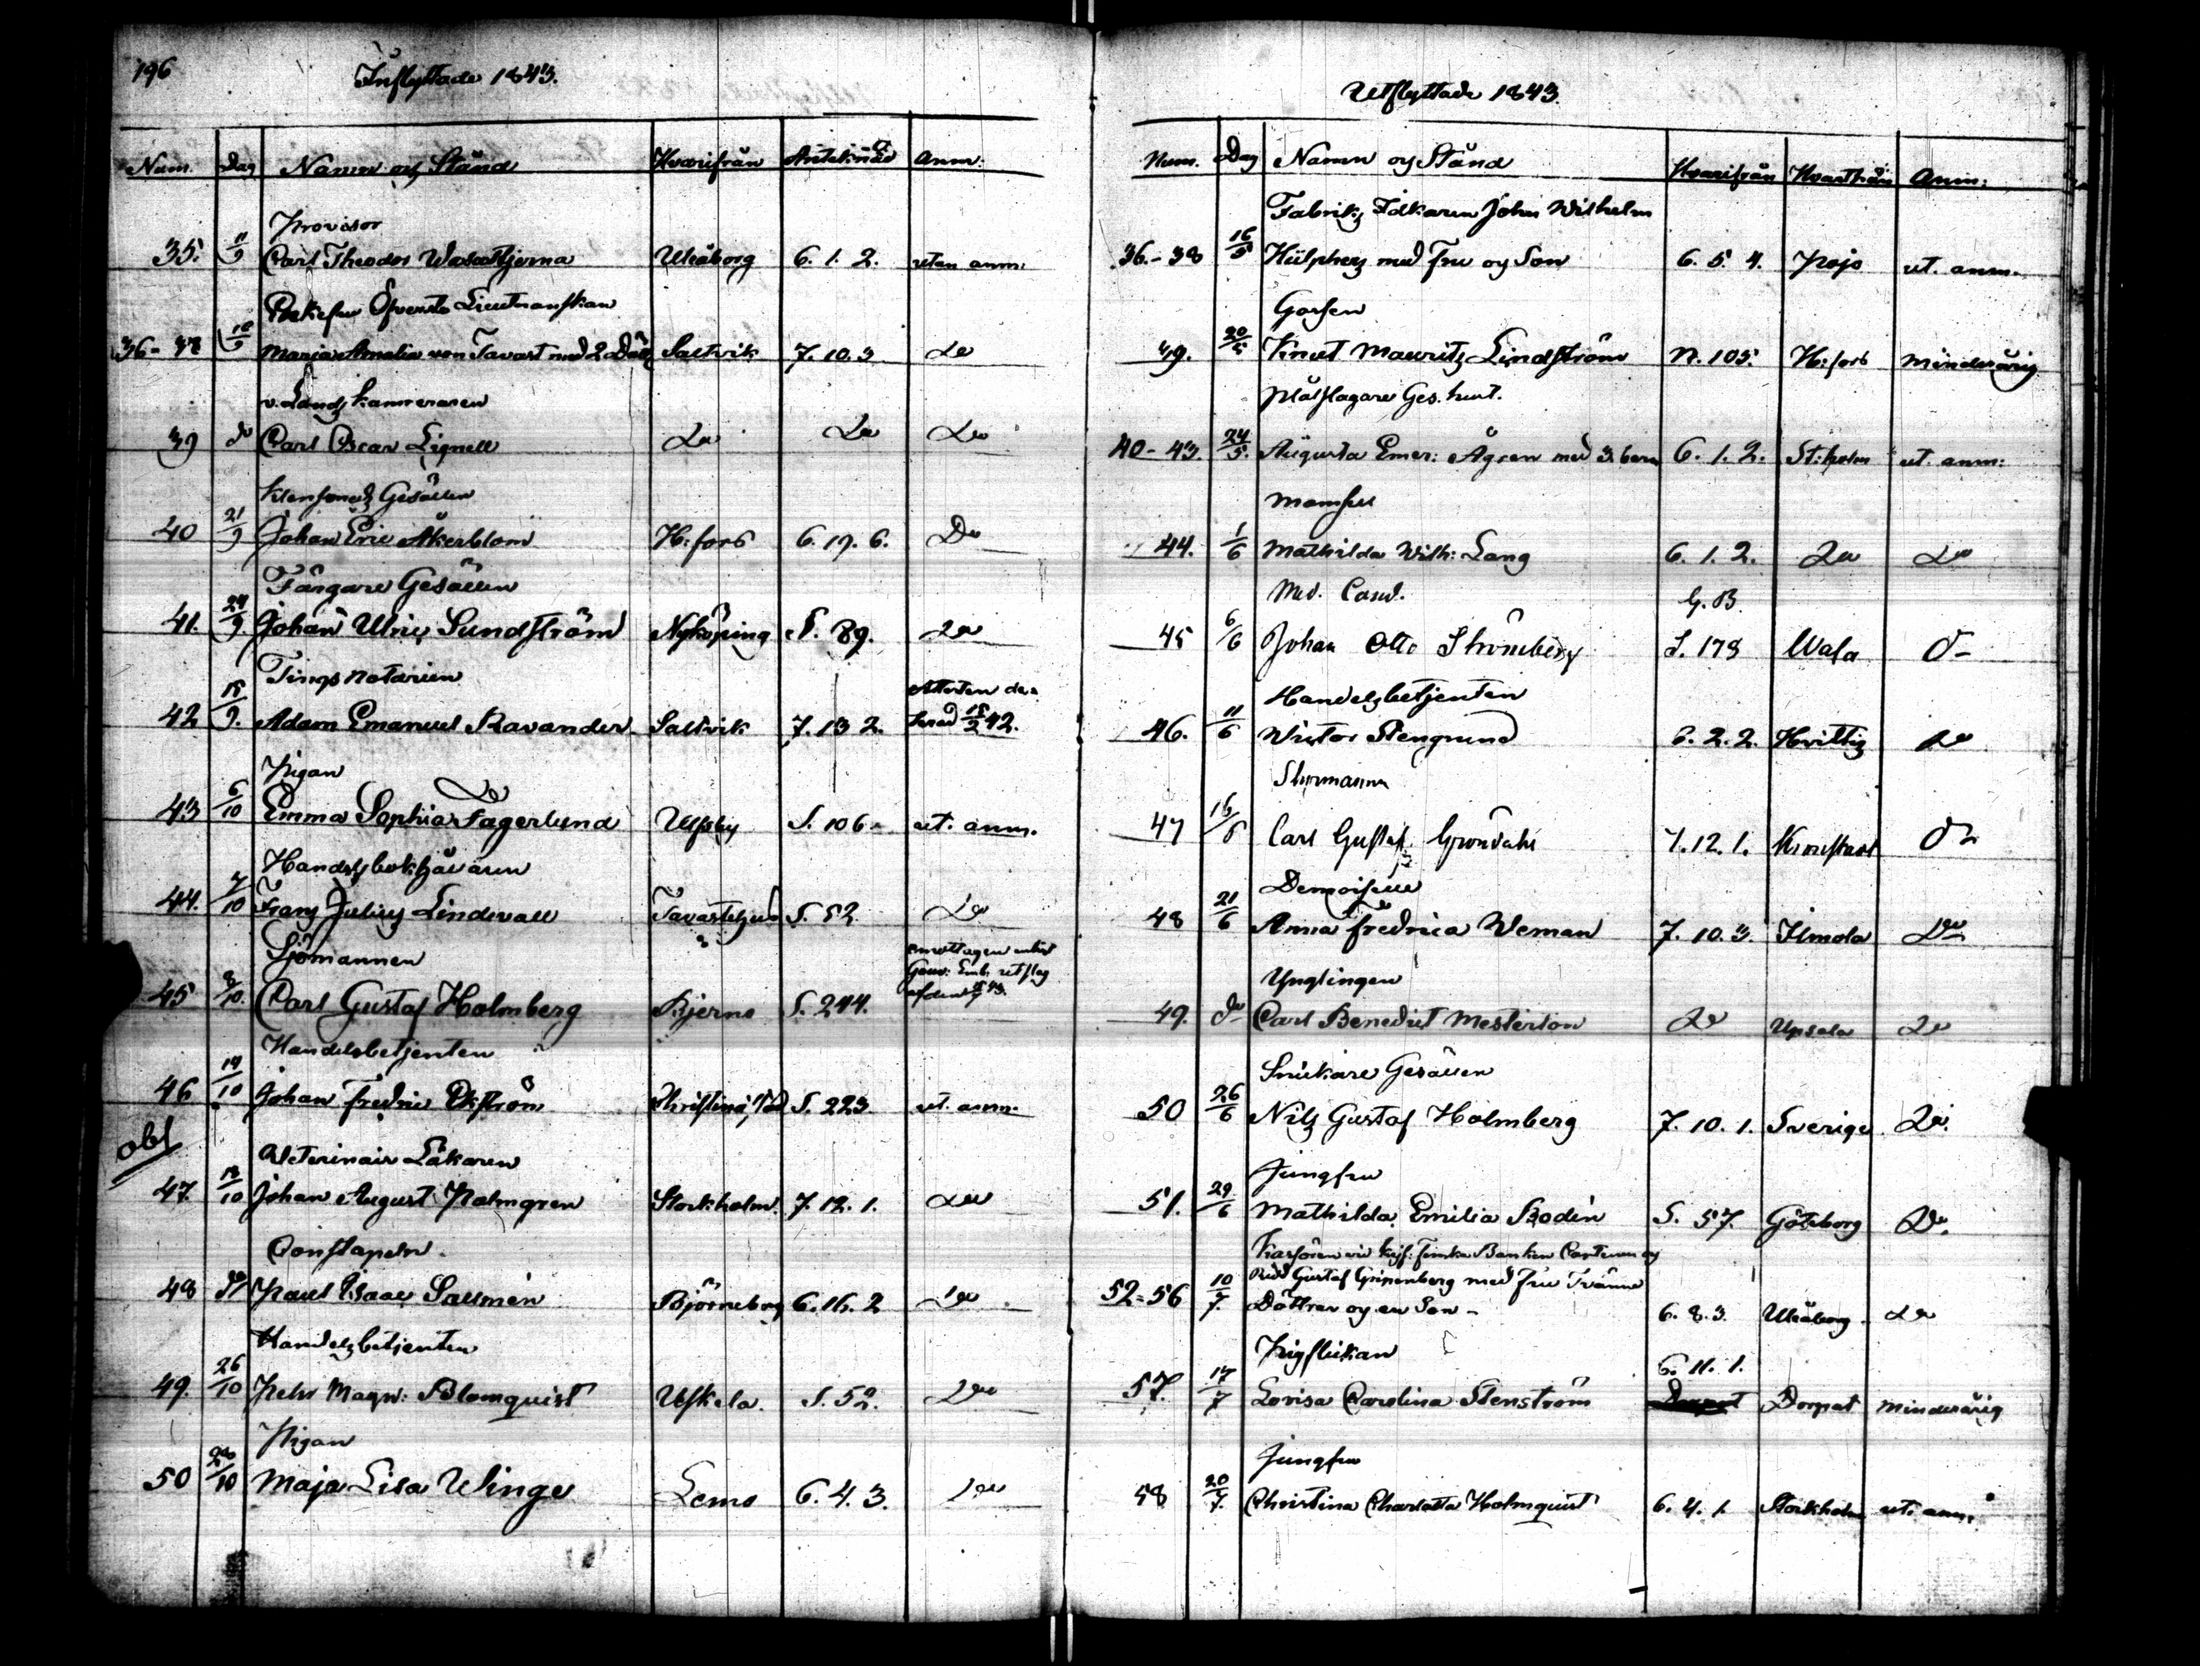 196
Inflyttade 1843.
Num. Dag Namn och Stånd Hvarifrån Anteknad Anm:
Provisor
35. 11/9 Carl Theodor Wasastjerna Uleåborg 6. 1. 2. utan anm:
Enkefru Öfverste Lieutnanskan
36-38 18/9 Maria Amalia von Tavast med 2 Dött. Saltvik 7. 10. 3 Do
v. Landskamreraren
39 do Carl Oscar Lignell Do Do Do
Klensmeds Gesällen
40 21/9 Johan Eric Åkerblom H:fors 6. 17. 6. Do
Färgare Gesällen
41. 24/9. Johan Ulric Sundström Nyköping S. 89. Do
Tings notarien
42 15/9. Adam Emanuel Ravander Saltvik 7. 13 2. Attesten da-
terad 15/2 42.
Pigan
43 6/10 Emma Sophia Fagerlund Ulfsby S. 106. ut. anm.
Handelsbokhållaren
44. 7/10 Franz Julius Lindevall Tavastehus S. 52 Do
Sjömannen
45 8/10. Carl Gustaf Holmberg Bjerno S. 244. emottagen enligt
Gouv: Emb. utslag
af den
Handelsbetjenten
46 14/10 Johan Fredric Ekström Christinæstad S. 223. ut. anm.
obs
Veterinair Läkaren
47. 18/10 Johan August Palmgren Stockholm. 7. 12. 1. Do
Constapeln.
48 do Paul Isaac Sallmén Björneborg 6. 16. 2 Do
Handelsbetjenten
49. 26/10 Pehr Magn: Blomquist Uskela. S. 52. Do
Pigan
50 28/10 Maja Lisa Winge Lemo 6. 4. 3. Do
Utflyttade 1843.
Num. Dag Namn och Stånd Hvarifrån Hvarthän Anm:
Fabriks Idkaren John Wilhelm
36.-38 16/5 Hülphers med Fru och Son 6. 5. 4. Pojo ut. anm.
Gossen
39. 20/5 Knut Mauritz Lindström N. 105. H:fors Minderårig
Plåtslagare Ges. hust.
40-43. 24/5. Augusta Emer: Ågren med 3 barn 6. 1. 2. St:holm ut. anm:
Mamsell
44. 1/6 Mathilda Wilh: Lang 6. 1. 2. Do Do
Med. Cand. G. B.
45 6/6 Johan Otto Strömberg S. 178 Wasa Do
Handelsbetjenten
46. 11/6 Victor Stengrund 6. 2. 2. Hvittis Do
Styrmannen
47 15/6 Carl Gustaf Gröndahl 7. 12. 1. Kronstadt Do
Demoiselle
48 21/6 Anna Fredrica Weman 7. 10. 3. Ilmola Do
Ynglingen
49. do Carl Benedict Mesterton Do Upsala Do
Snickare Gesällen
50 26/6 Nils Gustaf Holmberg 7. 10. 1. Sverige Do
Jungfru
51. 29/6 Mathilda Emilia Bodin S. 57. Göteborg Do.
Kassören vid Kejs: Finska Banken Capitenen och
Ridd Gustaf Gripenberg med Fru Tvänne
52-56 10/7. Döttrar och en Son - 6. 8. 3. Uleåborg. Do
Pigflickan 6. 11. 1.
57. 17/7 Lovisa Carolina Stenström Dorpat Dorpat Minderårig
Jungfru
58 20/7. Christina Charlotta Holmquist 6. 4. 1. Stockholm ut. anm.